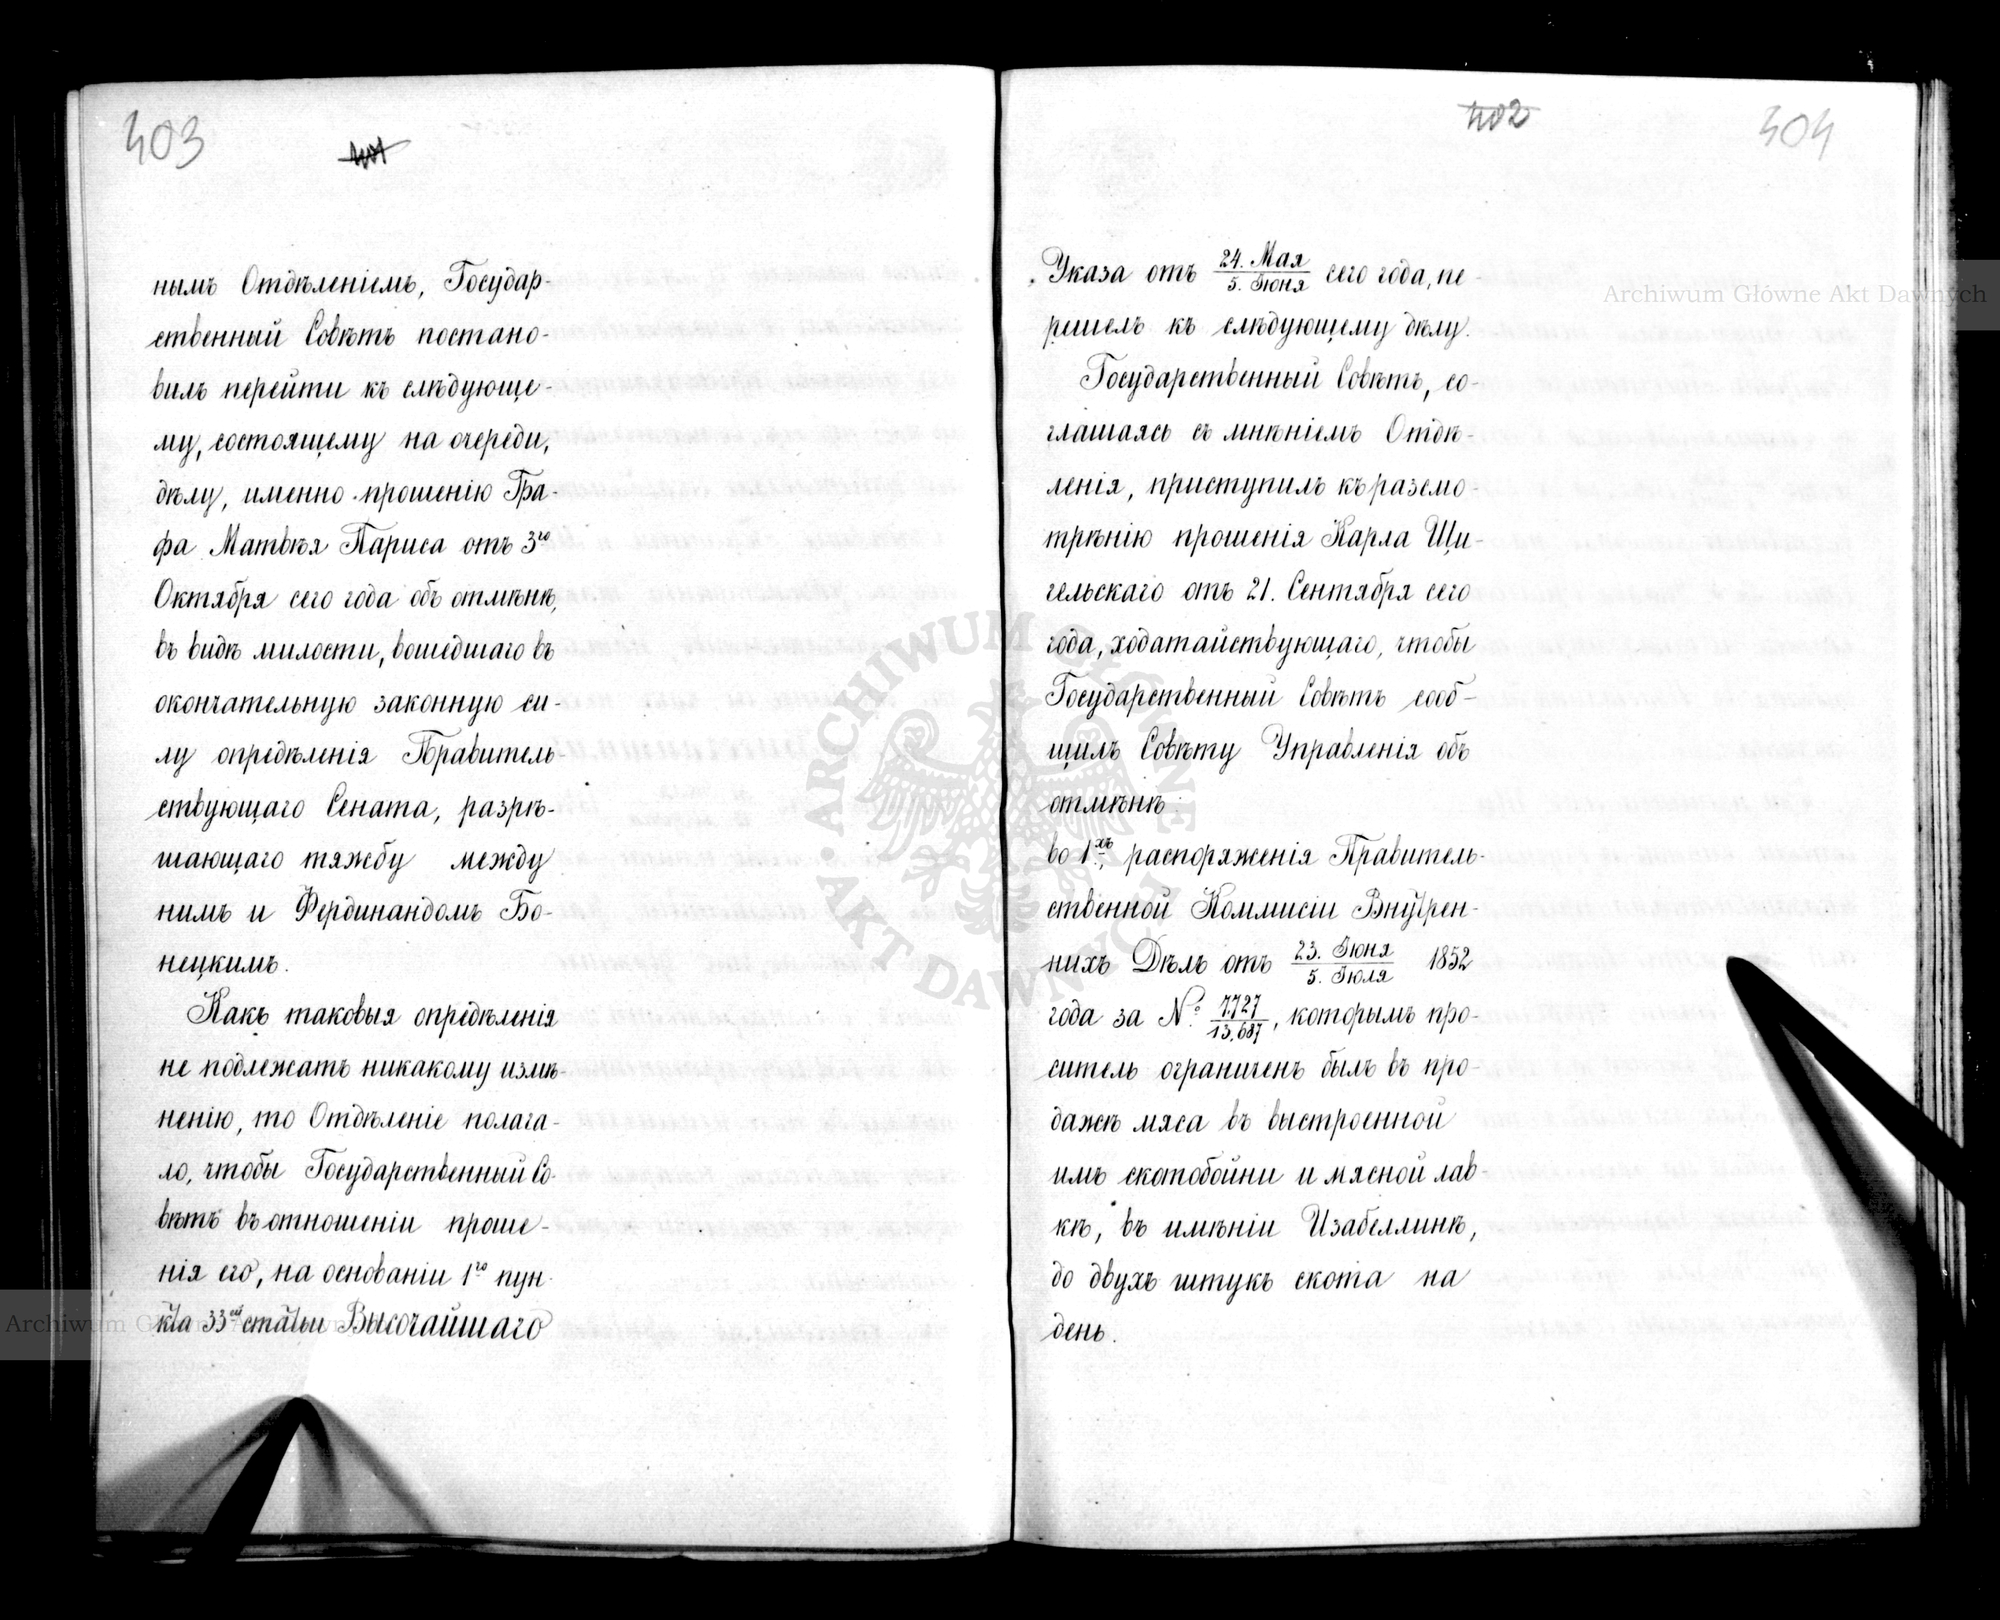 403
401
нымъ Отдѣленіемъ, Государ-
ственный Совѣтъ постано-
вилъ перейти къ слѣдующе-
му, состоящему на очереди,
дѣлу, именно прошенію Гра-
фа Матвѣя Париса отъ 3го
Октября сего года объ отмѣнѣ,
въ видѣ милости, вошедшаго въ
окончательную законную си-
лу опредѣленія Правитель-
ствующаго Сената, разрѣ-
шающаго тяжбу между
нимъ и Фердинандомъ Бо-
нецкимъ.
Какъ таковыя опредѣленія
не подлежатъ никакому измѣ-
ненію, то Отдѣленіе полага-
ло, чтобы Государственный Со-
вѣтъ въ отношеніи проше-
нія его, на основаніи 1го пун-
кта 33ей статьи Высочайшаго
402
404
Указа отъ 24. Мая / 5. Іюня сего года, пе-
решелъ къ слѣдующему дѣлу.
Государственный Совѣтъ, со-
глашаясь съ мнѣніемъ Отдѣ-
ленія, приступилъ къ разсмо-
трѣнію прошенія Карла Щи-
гельскаго отъ 21. Сентября сего
года, ходатайствующаго, чтобы
Государственный Совѣтъ сооб-
щилъ Совѣту Управленія объ
отмѣнѣ:
во 1хъ, распоряженія Правитель-
ственной Коммисіи Внутрен-
нихъ Дѣлъ отъ 23. Іюня / 5. Іюля 1852
года за №. 7727 / 13,687, которымъ про-
ситель ограниченъ былъ въ про-
дажѣ мяса въ выстроенной
имъ скотобойни и мясной лав-
кѣ, въ имѣніи Изабеллинѣ,
до двухъ штукъ скота на
день.
Archiwum Główne Akt Dawnych
Archiwum Główne Akt Dawnych
ARCHIWUM GŁÓWNE
AKT DAWNYCH